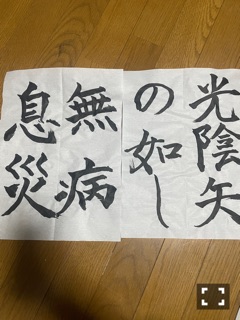 光陰矢
の如し
無病
息災